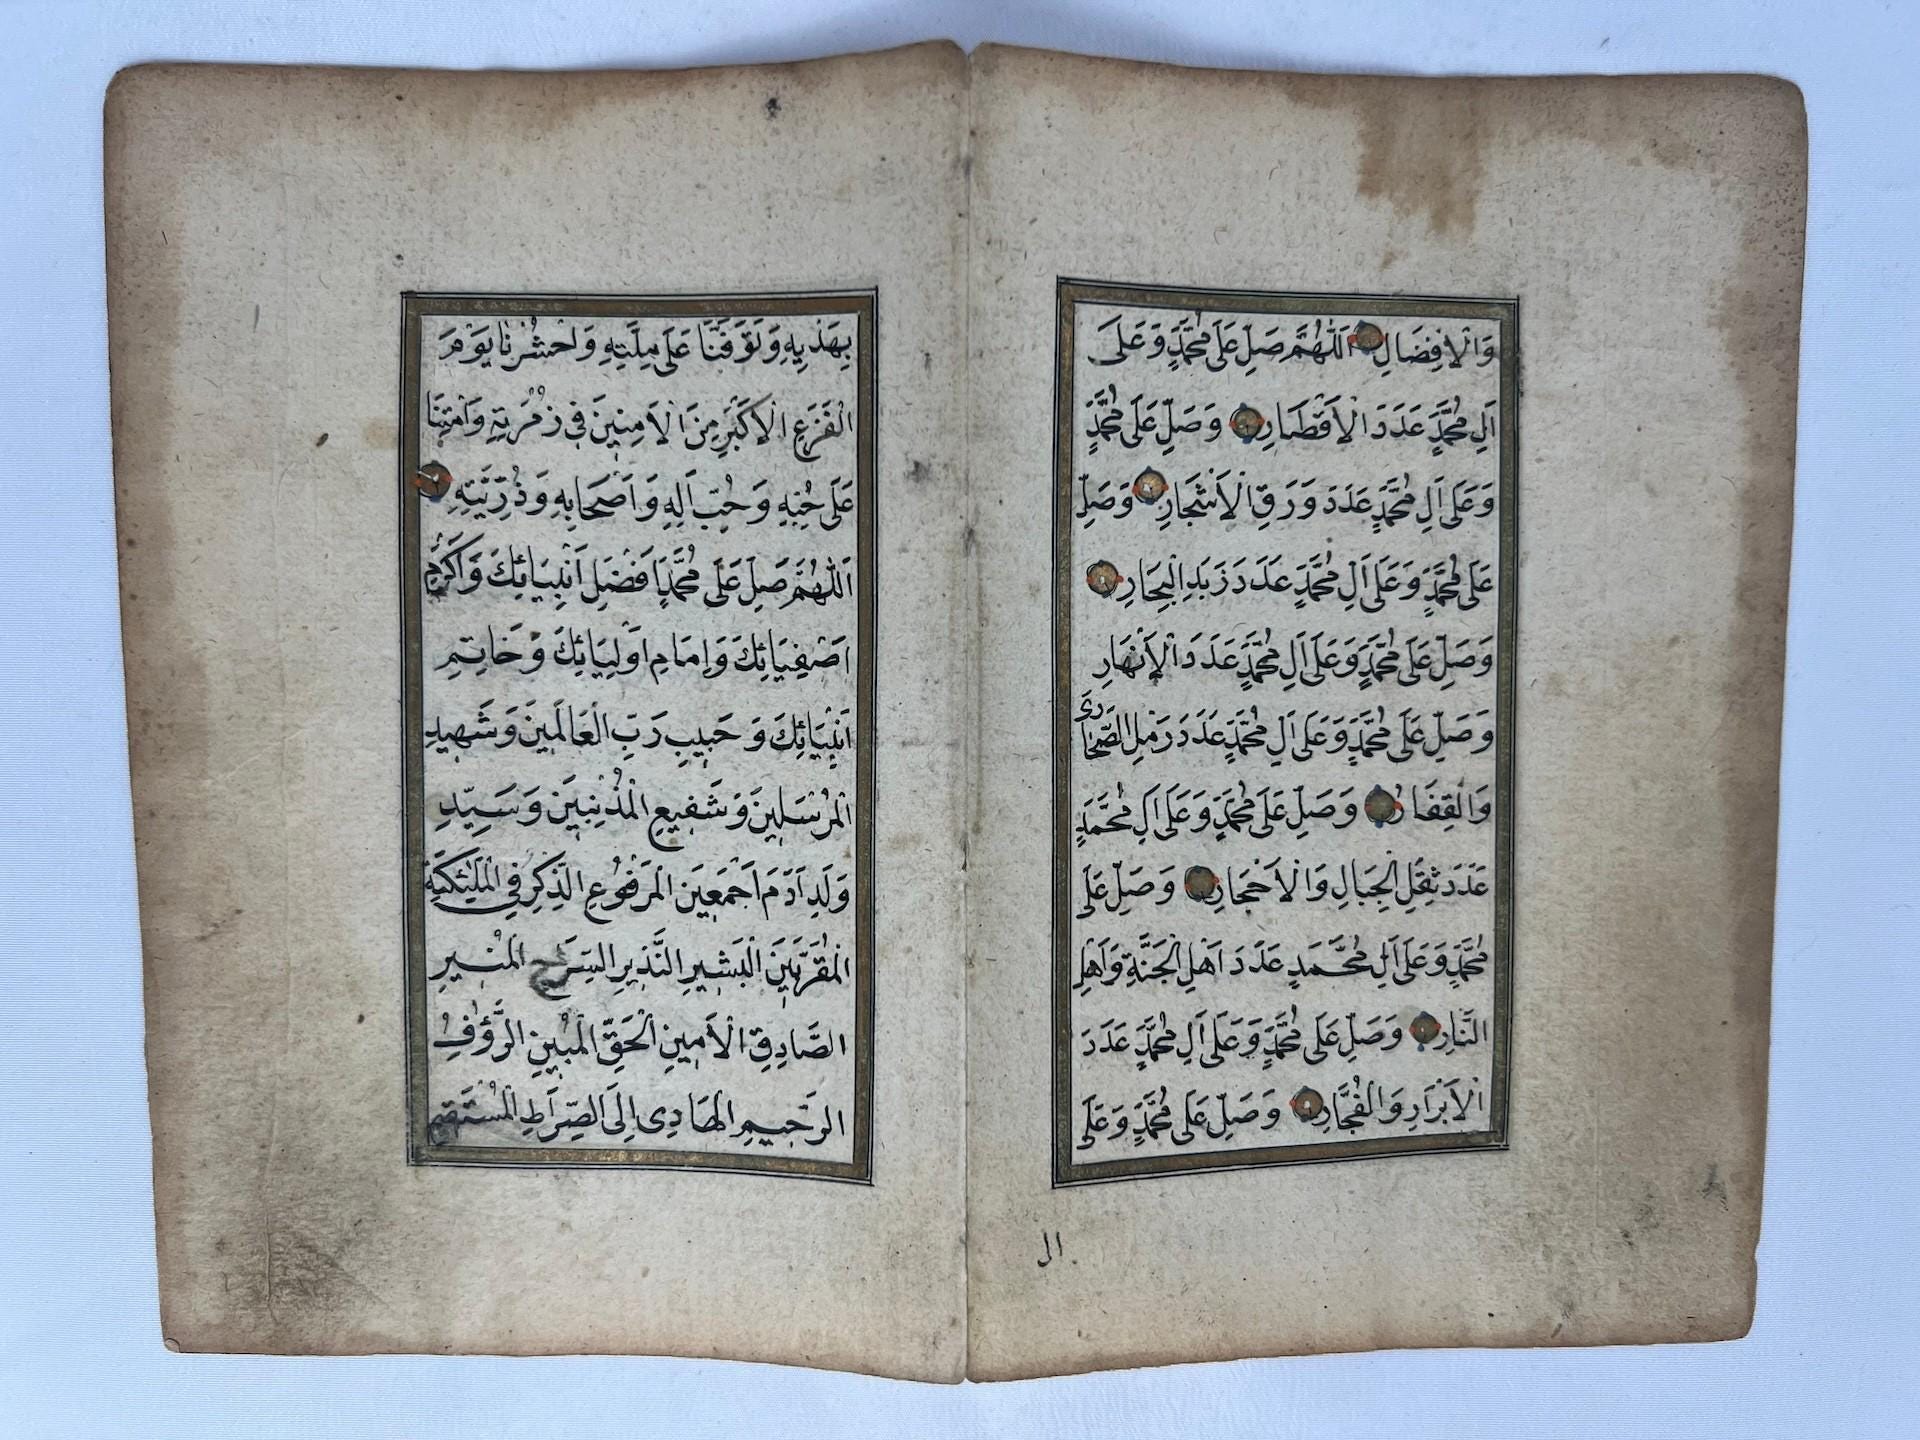 وَالْاِفْضَالِ اَللّٰهُمَّ صَلِّ عَلَى مُحَمَّدٍ وَعَلَى
اٰلِ مُحَمَّدٍ عَدَدَ الْاَقْطَارِ وَصَلِّ عَلَى مُحَمَّدٍ
وَعَلَى اٰلِ مُحَمَّدٍ عَدَدَ وَرَقِ الْاَشْجَارِ وَصَلِّ
عَلَى مُحَمَّدٍ وَعَلَى اٰلِ مُحَمَّدٍ عَدَدَ زَبَدِ الْبِحَارِ
وَصَلِّ عَلَى مُحَمَّدٍ وَعَلَى اٰلِ مُحَمَّدٍ عَدَدَ الْاَنْهَارِ
وَصَلِّ عَلَى مُحَمَّدٍ وَعَلَى اٰلِ مُحَمَّدٍ عَدَدَ رَمْلِ الصَّحَارَى
وَالْقِفَارِ وَصَلِّ عَلَى مُحَمَّدٍ وَعَلَى اٰلِ مُحَمَّدٍ
عَدَدَ ثِقَلِ الْجِبَالِ وَالْاَحْجَارِ وَصَلِّ عَلَى
مُحَمَّدٍ وَعَلَى اٰلِ مُحَمَّدٍ عَدَدَ اَهْلِ الْجَنَّةِ وَاَهْلِ
النَّارِ وَصَلِّ عَلَى مُحَمَّدٍ وَعَلَى اٰلِ مُحَمَّدٍ عَدَدَ
الْاَبْرَارِ وَالْفُجَّارِ وَصَلِّ عَلَى مُحَمَّدٍ وَعَلَى
ال
بِهَدْيِهِ وَتَوَفَّنَا عَلَى مِلَّتِهِ وَاحْشُرْنَا يَوْمَ
الْفَزَعِ الْاَكْبَرِ مِنَ الْاٰمِنِينَ فِي زُمْرَتِهِ وَاَمِتْنَا
عَلَى حُبِّهِ وَحُبِّ اٰلِهِ وَاَصْحَابِهِ وَذُرِّيَّتِهِ
اَللّٰهُمَّ صَلِّ عَلَى مُحَمَّدٍ اَفْضَلِ اَنْبِيَائِكَ وَاَكْرَمِ
اَصْفِيَائِكَ وَاِمَامِ اَوْلِيَائِكَ وَخَاتِمِ
اَنْبِيَائِكَ وَحَبِيبِ رَبِّ الْعَالَمِينَ وَشَهِيدِ
الْمُرْسَلِينَ وَشَفِيعِ الْمُذْنِبِينَ وَسَيِّدِ
وَلَدِ اٰدَمَ اَجْمَعِينَ الْمَرْفُوعِ الذِّكْرِ فِي الْمَلٰئِكَةِ
الْمُقَرَّبِينَ الْبَشِيرِ النَّذِيرِ السِّرَاجِ الْمُنِيرِ
الصَّادِقِ الْاَمِينِ الْحَقِّ الْمُبِينِ الرَّؤُفِ
الرَّحِيمِ الْهَادِى اِلَى الصِّرَاطِ الْمُسْتَقِيمِ